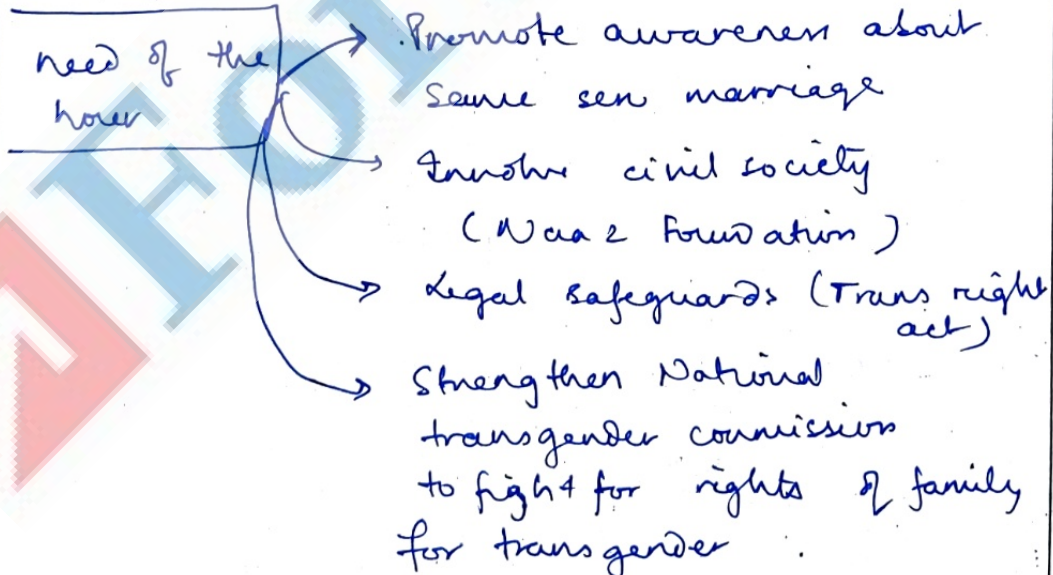 need of the
hour
Promote awareness about
same sex marriage
Involve civil society
(Naaz Foundation)
Legal safeguards (Trans right
act)
Strengthen National
transgender commission
to fight for rights of family
for transgender.